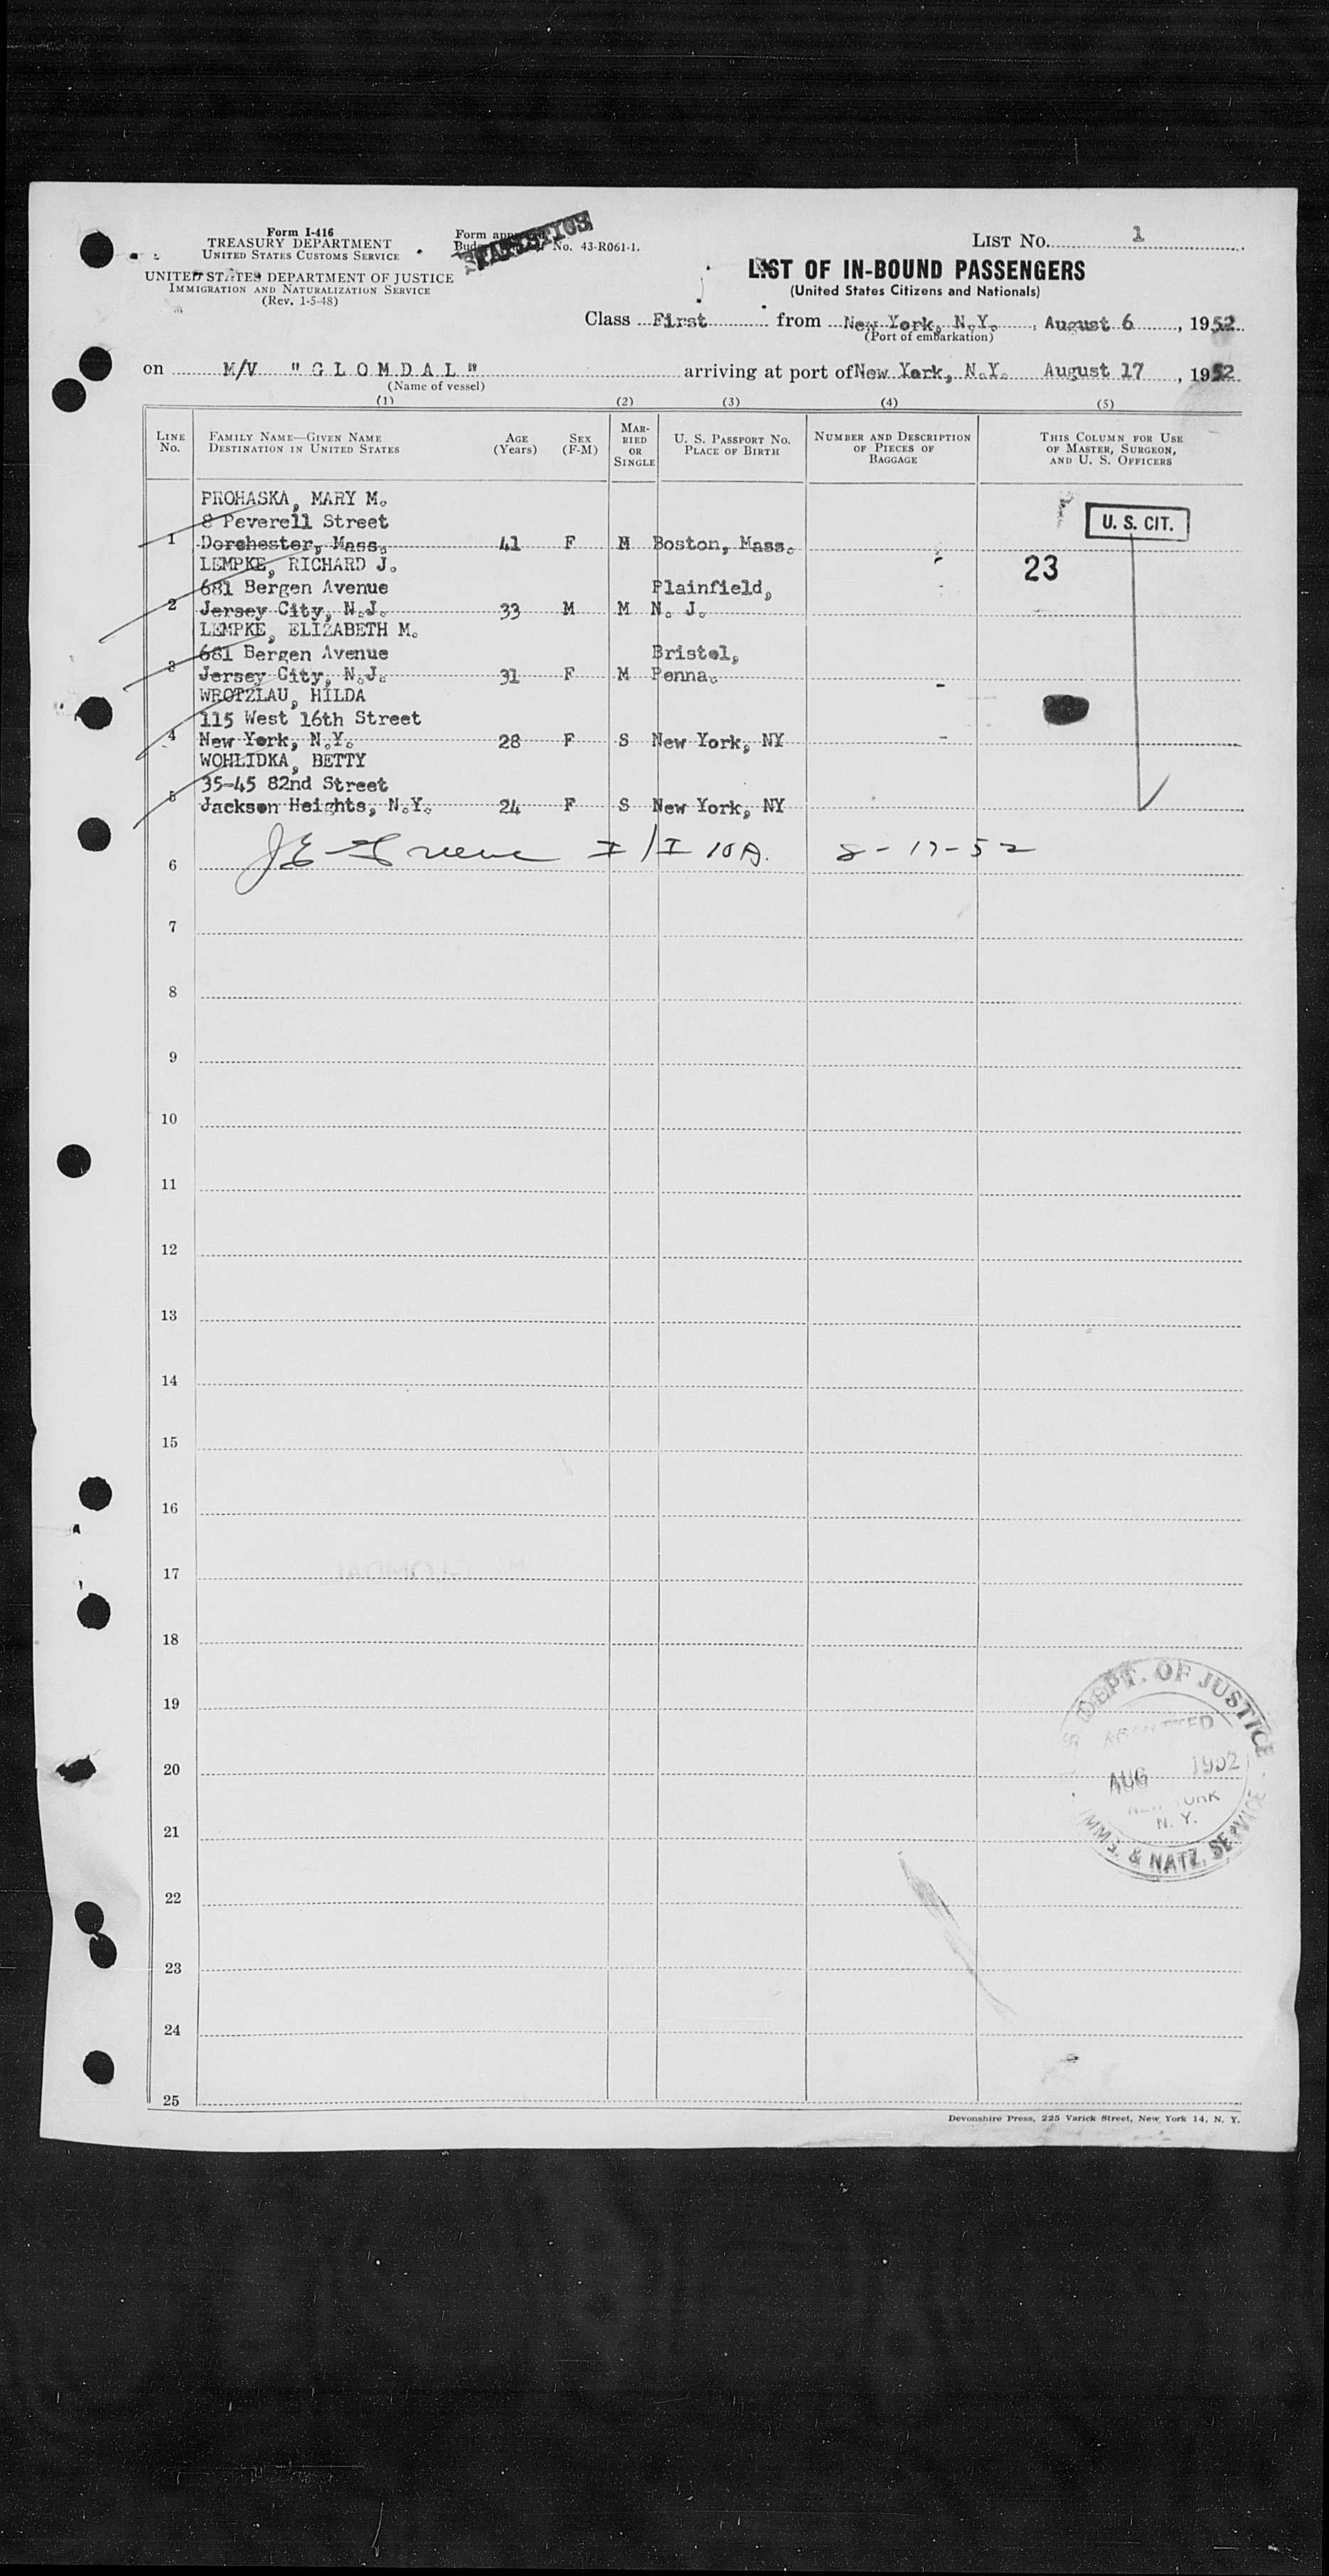 Form I-416
TREASURY DEPARTMENT
UNITED STATES CUSTOMS SERVICE
UNITED STATES DEPARTMENT OF JUSTICE
IMMIGRATION AND NATURALIZATION SERVICE
(Rev. 1-5-48)
Form
No. 43-R061-1.
STATISTICS
LIST No. 1
LIST OF IN-BOUND PASSENGERS
(United States Citizens and Nationals)
Class First from New York, N.Y., August 6, 1952
(Port of embarkation)
on M/V "GLOMDAL" arriving at port of New York, N.Y. August 17, 1952
(Name of vessel)
(1) (2) (3) (4) (5)
LINE No. FAMILY NAME—GIVEN NAME DESTINATION IN UNITED STATES AGE (Years) SEX (F-M) MARRIED OR SINGLE U. S. PASSPORT NO. PLACE OF BIRTH NUMBER AND DESCRIPTION OF PIECES OF BAGGAGE THIS COLUMN FOR USE OF MASTER, SURGEON, AND U. S. OFFICERS
PROHASKA, MARY M.
8 Peverell Street
1 Dorchester, Mass. 41 F M Boston, Mass.
U. S. CIT.
LEMPKE, RICHARD J.
23
681 Bergen Avenue Plainfield,
2 Jersey City, N.J. 33 M M N. J.
LEMPKE, ELIZABETH M.
681 Bergen Avenue Bristol,
3 Jersey City, N.J. 31 F M Penna.
WROTZLAU, HILDA
115 West 16th Street
4 New York, N.Y. 28 F S New York, NY
WOHLIDKA, BETTY
35-45 82nd Street
5 Jackson Heights, N.Y. 24 F S New York, NY
6 J E Greene I/I 10A. 8-17-52
7
8
9
10
11
12
13
14
15
16
17
18
19
20
21
22
23
24
25
DEPT. OF JUSTICE
ADMITTED
AUG 1952
NEW YORK
N. Y.
IMMG. & NATZ. SERVICE
Devonshire Press, 225 Varick Street, New York 14, N. Y.